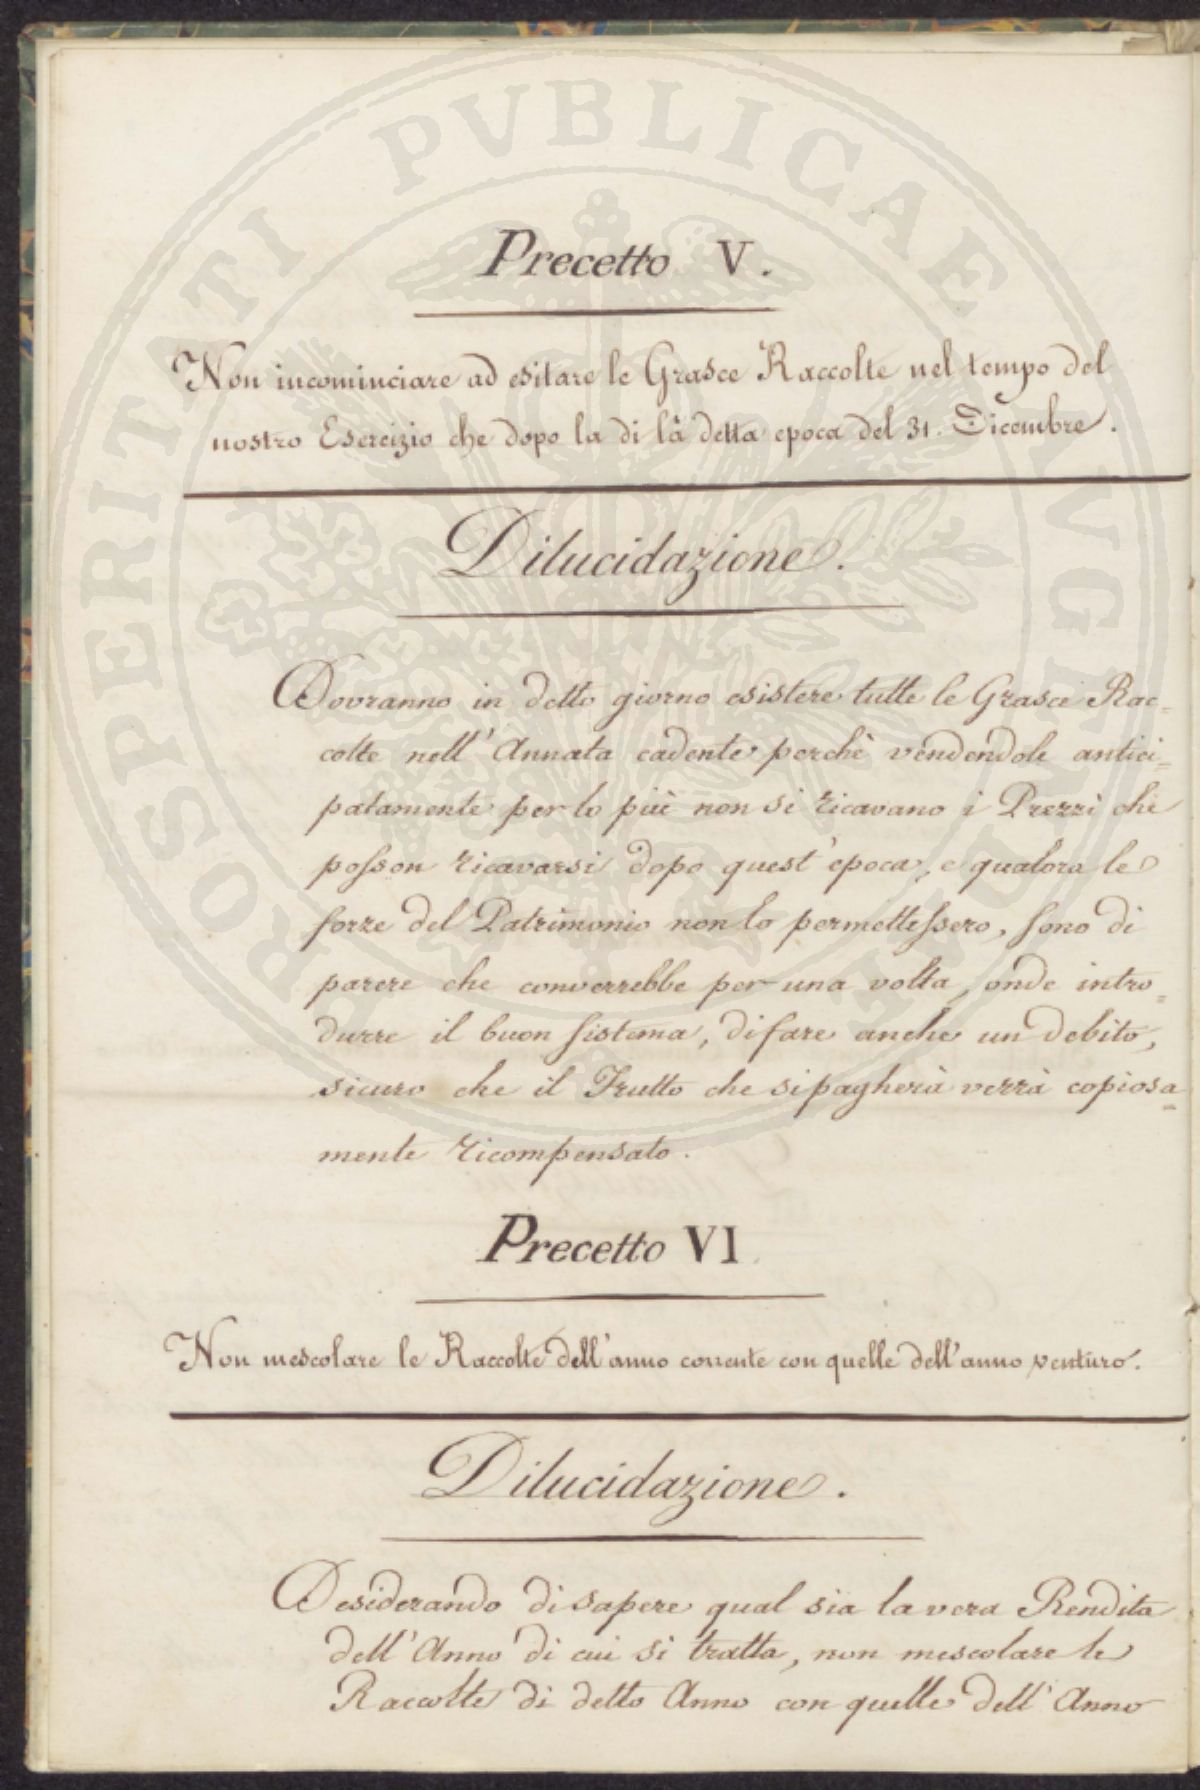 Precetto V.
Non incominciare ad esitare le Grasce Raccolte nel tempo del
nostro Esercizio che dopo la di là detta epoca del 31. Dicembre.
Dilucidazione.
Dovranno in detto giorno esistere tutte le Grasce Rac=
colte nell'Annata cadente perchè vendendole antici=
patamente per lo più non si ricavano i Prezzi che
posson ricavarsi dopo quest'epoca, e qualora le
forze del Patrimonio non lo permettessero, sono di
parere che converrebbe per una volta, onde intro=
durre il buon sistema, di fare anche un debito,
sicuro che il Frutto che si pagherà verrà copiosa=
mente ricompensato.
Precetto VI
Non mescolare le Raccolte dell'anno corrente con quelle dell'anno venturo.
Dilucidazione.
Desiderando di sapere qual sia la vera Rendita
dell'Anno di cui si tratta, non mescolare le
Raccolte di detto Anno con quelle dell'Anno
PROSPERITATI PVBLICAE AVGENDAE